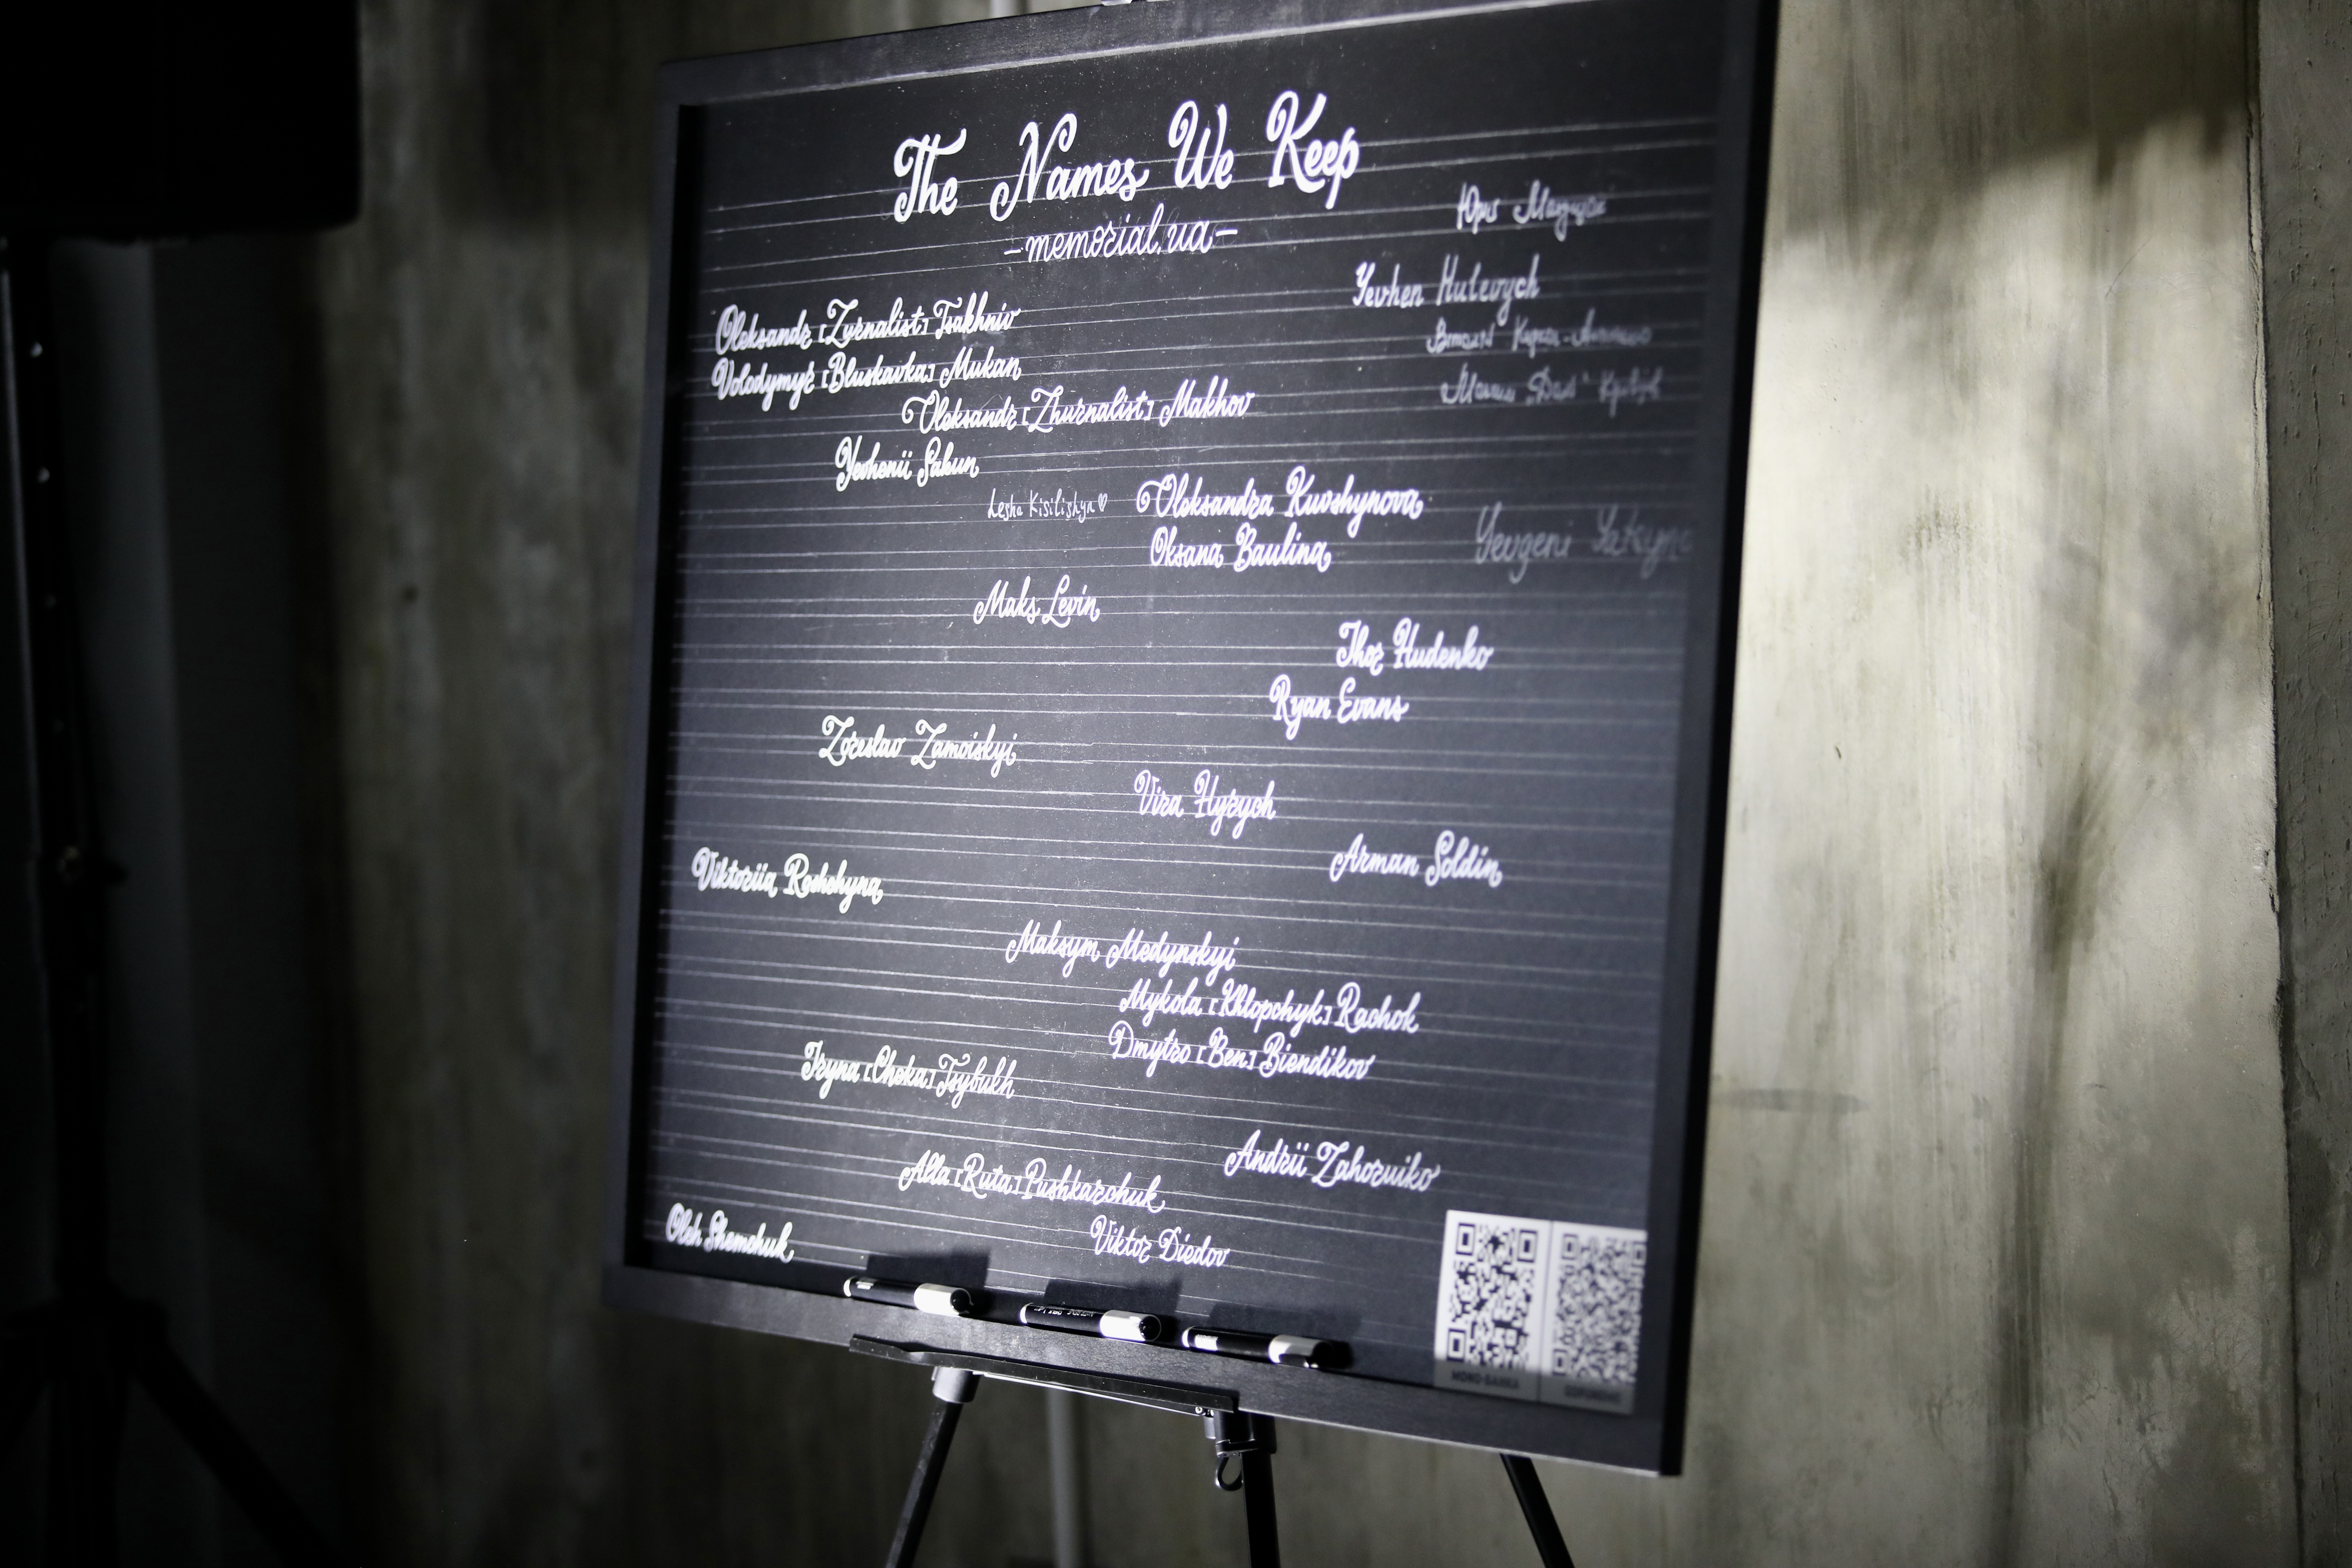 The Names We Keep
-memorial.ua-
Юрій
Yevhen Hulevych
Oleksandr [Zurnalist] Tsakhniv
Volodymyr [Bluskavka] Mukan
Oleksandr [Zhurnalist] Makhov
Yevhenii Sakun
Lesha Kisilishyn♡
Oleksandra Kuvshynova
Oksana Baulina
Yevgeni
Maks Levin
Ihor Hudenko
Ryan Evans
Zoreslav Zamoiskyi
Vira Hyrych
Arman Soldin
Viktoriia Roshchyna
Maksym Medynskyi
Mykola [Khlopchyk] Rachok
Dmytro [Ben] Biendikov
Iryna [Cheka] Tsybukh
Andrii Zahoruiko
Alla [Ruta] Pushkarchuk
Oleh Shemchuk
Viktor Diedov